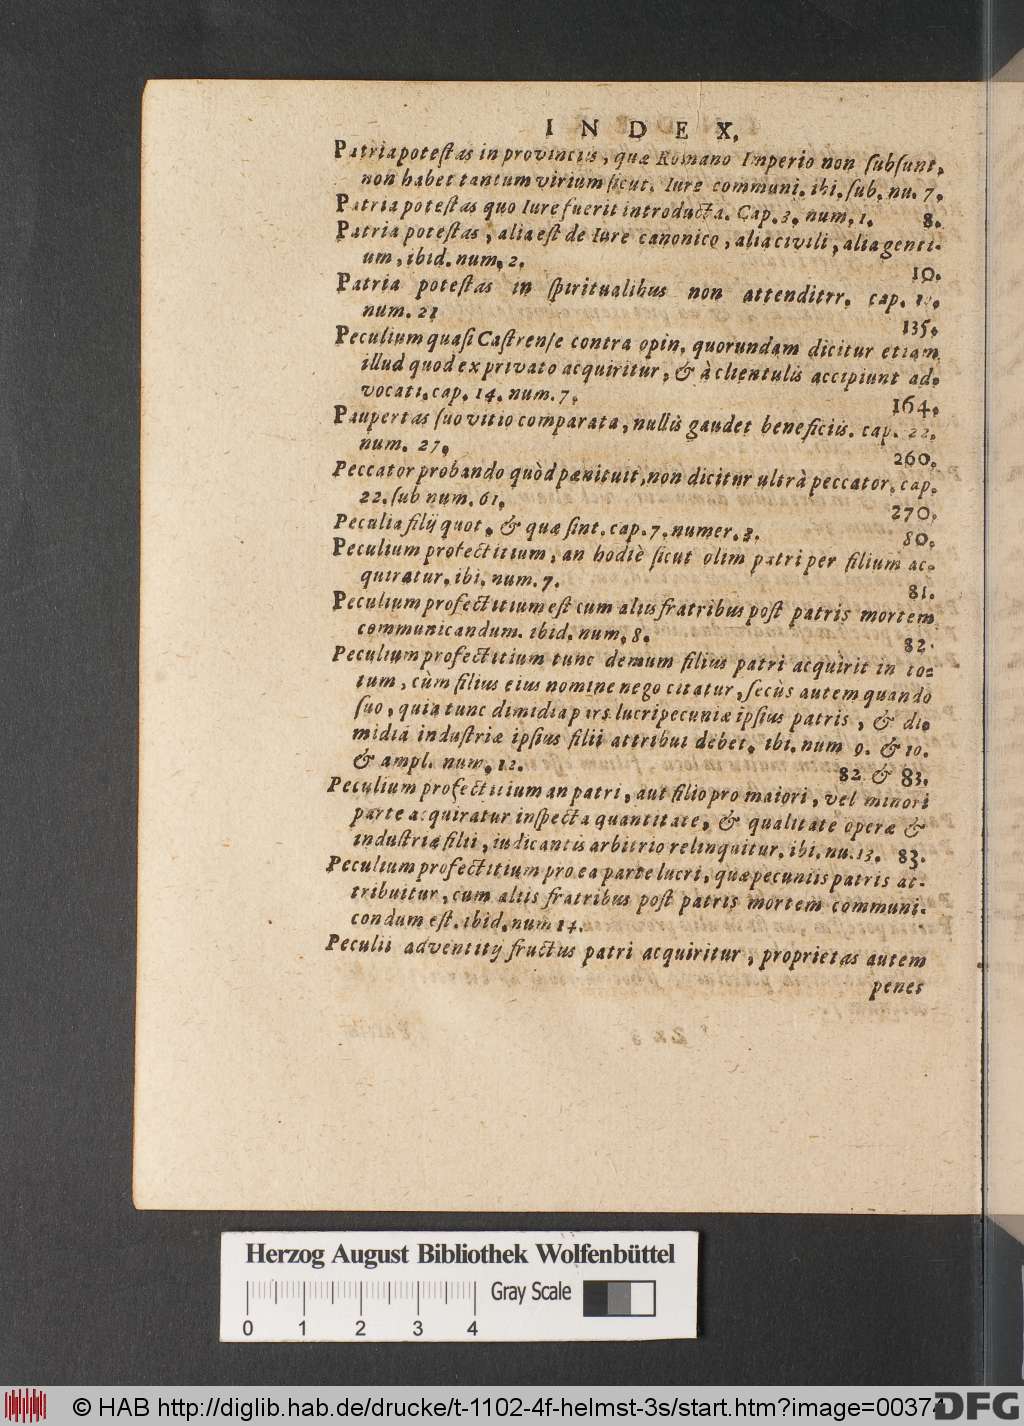 INDEX.
Patria potestas in provinciis, quæ Romano Imperio non subsunt,
non habet tantum virium sicut. Iure communi. ibi. sub. nu. 7.
Patria potestas quo Iure fuerit introducta. Cap. 3. num. 1. 8.
Patria potestas, alia est de Iure canonico, alia civili, alia genti-
um, ibid. num, 2. 10.
Patria potestas in spiritualibus non attenditrr. cap.
num. 21 135.
Peculium quasi Castrense contra opin. quorundam dicitur etiam
illud quod ex privato acquiritur, & à clientulis accipiunt ad-
vocati. cap. 14. num. 7. 164.
Paupertas suo vitio comparata, nullis gaudet beneficiis. cap. 22.
num. 27. 260.
Peccator probando quòd pænituit, non dicitur ultrà peccator. cap.
22. sub num. 61. 270.
Peculia filij quot, & quæ sint. cap. 7. numer. 3. 80.
Peculium profectitium, an hodiè sicut olim patri per filium ac-
quiratur. ibi. num. 7. 81.
Peculium profectitium est cum aliis fratribus post patris mortem
communicandum. ibid. num. 8. 82.
Peculium profectitium tunc demum filius patri acquirit in to-
tum, cùm filius eius nomine negocitatur, secùs autem quando
suo, quia tunc dimidia pars lucri pecuniæ ipsius patris, & di-
midiã industriæ ipsius filii attribui debet. ibi. num 9. & 10.
& ampl. num. 12. 82 & 83.
Peculium profectitium an patri, aut filio pro maiori, vel minori
parte acquiratur inspecta quantitate, & qualitate operæ &
industriæ filii, iudicantis arbitrio relinquitur. ibi. nu. 13. 83.
Peculium profectitium pro ea parte lucri, quæ pecuniis patris at-
tribuitur, cum aliis fratribus post patris mortem communi-
condum est. ibid. num 14.
Peculii adventitij fructus patri acquiritur, proprietas autem
penes
Herzog August Bibliothek Wolfenbüttel
Gray Scale
0 1 2 3 4
© HAB http://diglib.hab.de/drucke/t-1102-4f-helmst-3s/start.htm?image=00374
DFG